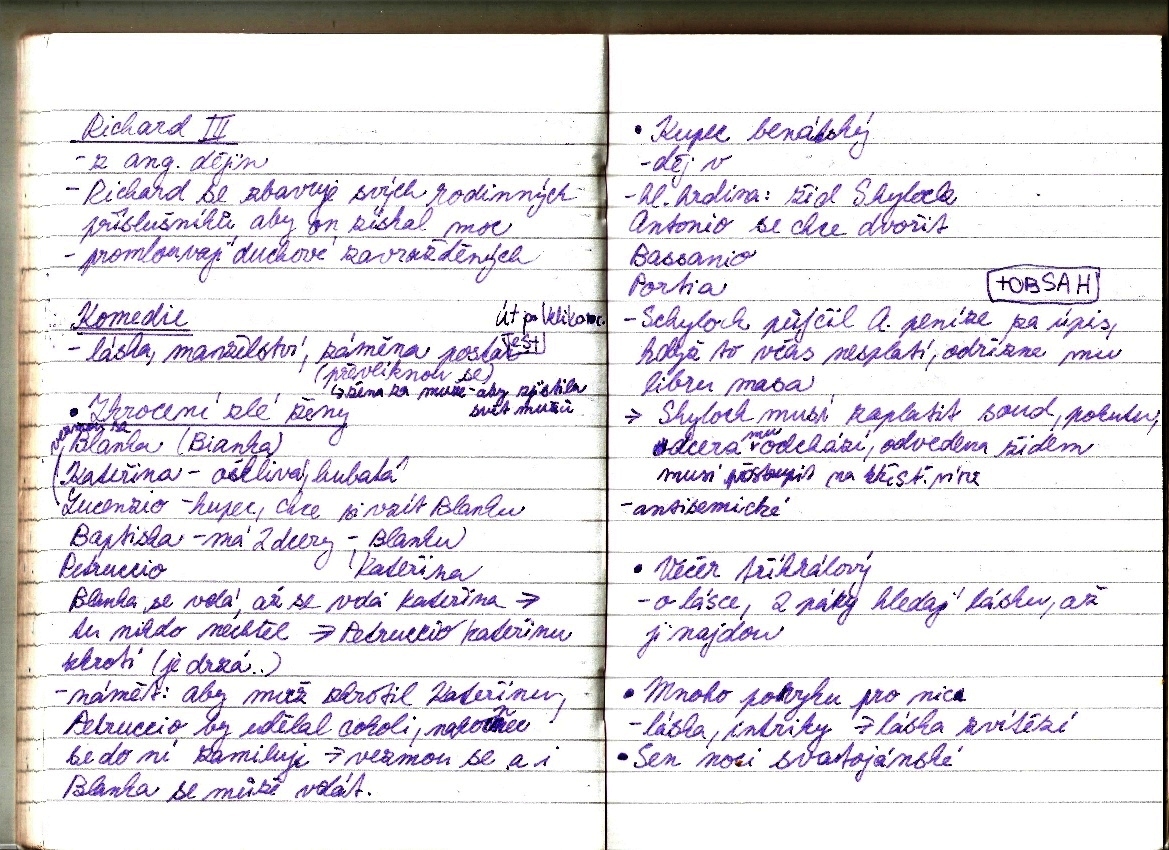 Richard III
- z ang. dějin
- Richard se zbavuje svých rodinných
příslušníků aby on získal moc
- promlouvají duchové zavražděných
Komedie
Út po
- láska, manželství, záměna postav
(převliknou se)
TEST
↳ žena za muže - aby zjistila
svět mužů
• Zkrocení zlé ženy
vezmou se
Blanka (Bianka)
Kateřina - ošklivá, hubatá
Lucenzio - kupec, chce si vzít Blanku
Baptista - má 2 dcery - Blanku
Petruccio Kateřina
Blanka se vdá, až se vdá Kateřina ⇒
tu nikdo nechtěl ⇒ Petruccio Kateřinu
zkrotí (je drzá..)
- námět: aby muž zkrotil Kateřinu,
Petruccio by udělal cokoli, nakonec
se do ní zamiluje → vezmou se a i
Blanka se může vdát.
• Kupec benátský
- děj v
- hl. hrdina: žid Shylock
Antonio se chce dvořit
Bassanio
Portia
+OBSAH
- Schylock půjčil A. peníze za úpis,
když to včas nesplatí, odřízne mu
libru masa
⇒ Shylock musí zaplatit soud, pokutu,
dcera mu odchází, odvedena židem
musí přistoupit na křest. víru
- antisemické
• Večer tříkrálový
- o lásce, 2 páry hledají lásku, až
ji najdou
• Mnoho povyku pro nic
- láska, intriky → láska zvítězí
• Sen noci svatojánské